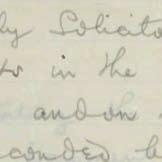 ly Solicito
in the
and on
conded b